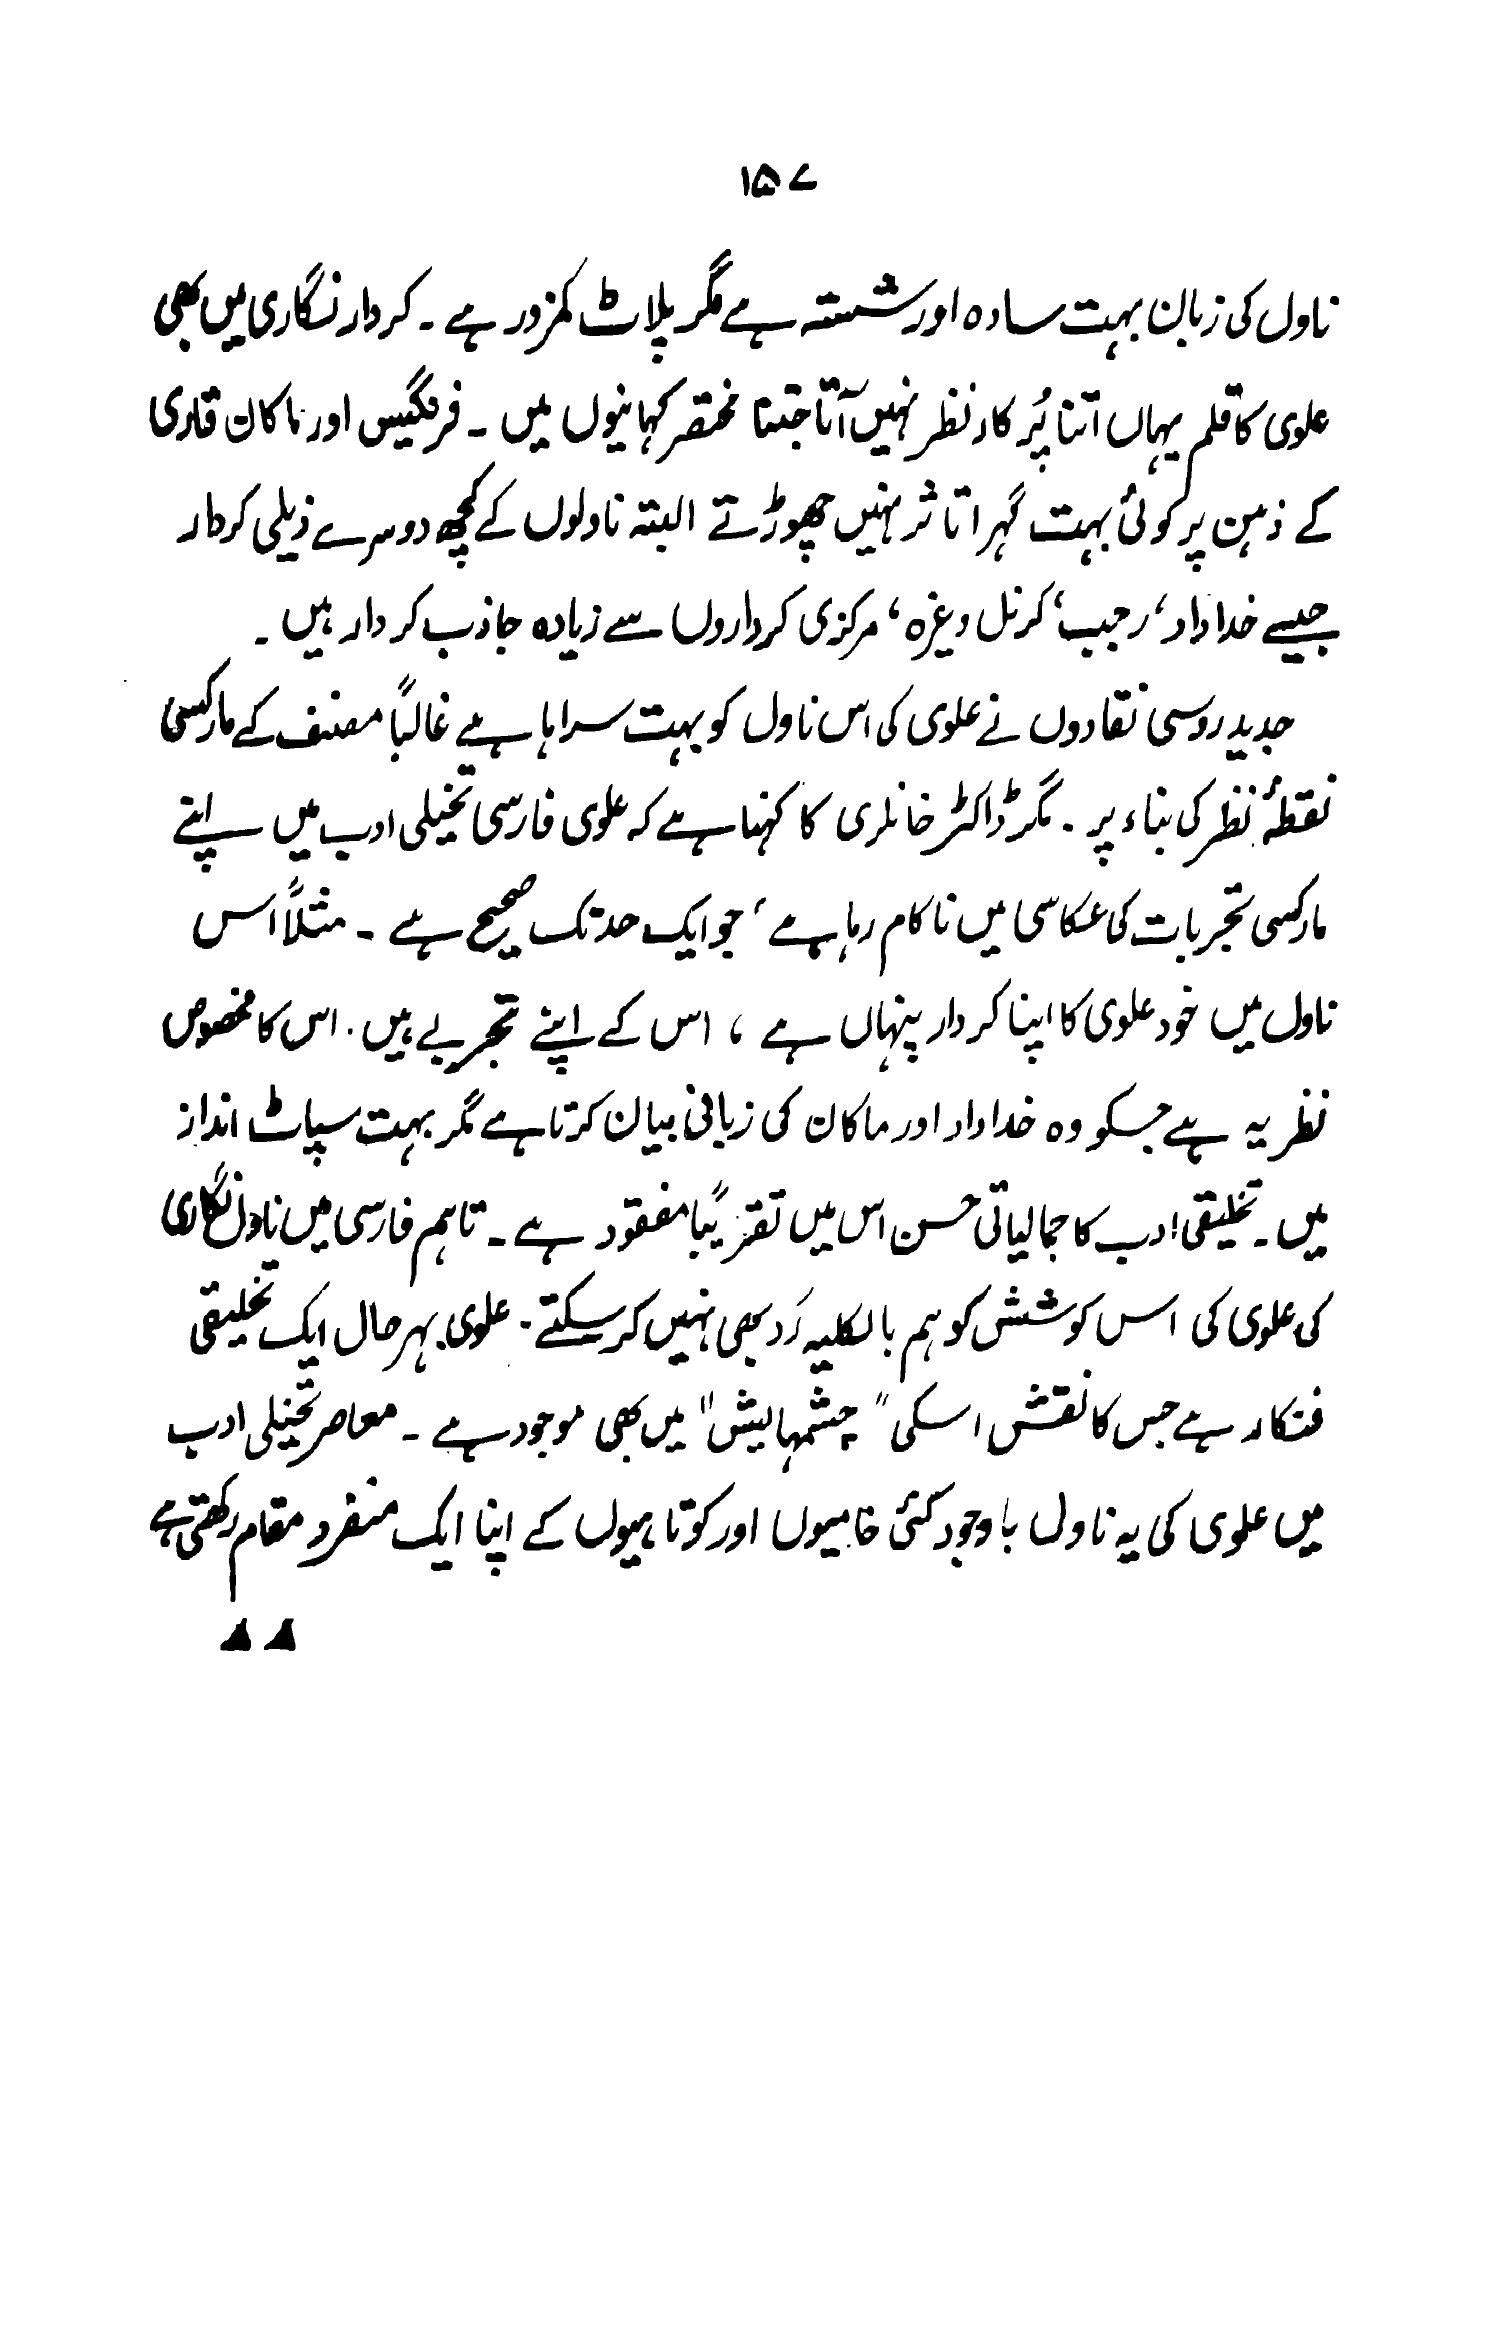 ۱۵۷
ناول کی زبان بہت سادہ اور شستہ ہے مگر پلاٹ کمزور ہے ۔ کردار نگاری میں بھی
علوی کا قلم یہاں اتنا پُر کار نظر نہیں آتا جتنا مختصر کہانیوں میں ۔ فرنگیس اور ماکان قاری
کے ذہن پر کوئی بہت گہرا تاثر نہیں چھوڑتے البتہ ناولوں کے کچھ دوسرے ذیلی کردار
جیسے خداداد، رجب، کرنل وغیرہ، مرکزی کرداروں سے زیادہ جاذب کردار ہیں ۔
جدید روسی نقادوں نے علوی کی اس ناول کو بہت سراہا ہے غالباً مصنف کے مارکسی
نقطۂ نظر کی بناء پر ۔ مگر ڈاکٹر خانلری کا کہنا ہے کہ علوی فارسی تخیلی ادب میں اپنے
مارکسی تجربات کی عکاسی میں ناکام رہا ہے، جو ایک حد تک صحیح ہے ۔ مثلاً اس
ناول میں خود علوی کا اپنا کردار پنہاں ہے، اس کے اپنے تجربے ہیں ۔ اس کا مخصوص
نظریہ ہے جسکو وہ خداداد اور ماکان کی زبانی بیان کرتا ہے مگر بہت سپاٹ انداز
میں ۔ تخلیقی ادب کا جمالیاتی حسن اس میں تقریباً مفقود ہے ۔ تاہم فارسی میں ناول نگاری
کی علوی کی اس کوشش کو ہم بالکلیہ رَد بھی نہیں کر سکتے ۔ علوی بہر حال ایک تخلیقی
فنکار ہے جس کا نقش اسکی "چشمہایش" میں بھی موجود ہے ۔ معاصر تخیلی ادب
میں علوی کی یہ ناول باوجود کئی خامیوں اور کوتاہیوں کے اپنا ایک منفرد مقام رکھتی ہے